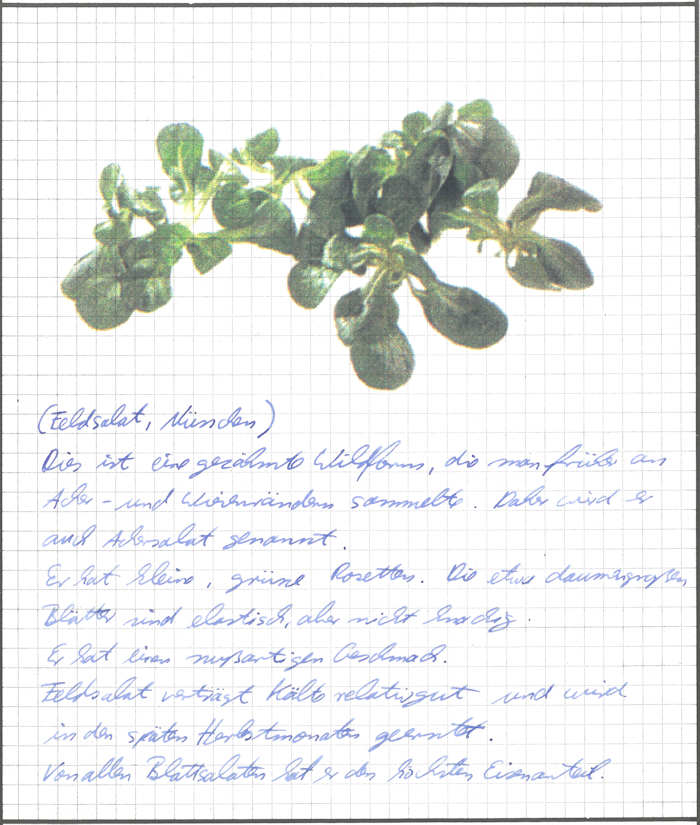 (Feldsalat, Nüsschen)
Dies ist eine gezähmte Wildform, die man früher an
Acker- und Wiesenrändern sammelte. Daher wird er
auch Ackersalat genannt.
Er hat kleine, grüne Rosetten. Die etwa daumengroßen
Blätter sind elastisch, aber nicht knackig.
Er hat einen nußartigen Geschmack.
Feldsalat verträgt Kälte relativ gut und wird
in den späten Herbstmonaten geerntet.
Von allen Blattsalaten hat er den höchsten Eisenanteil.